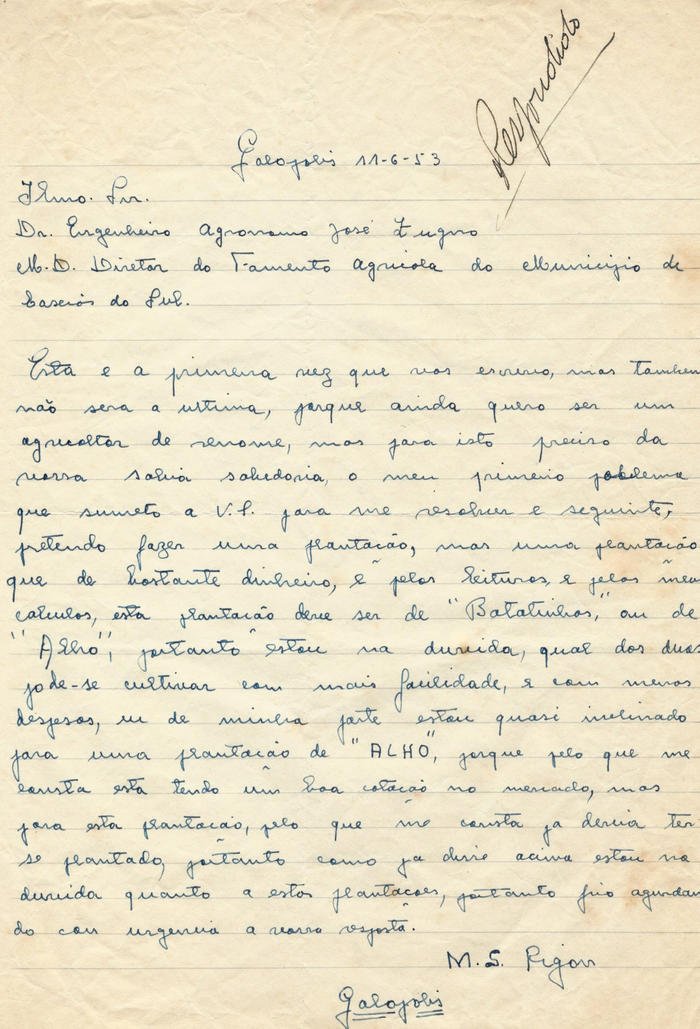 Respondido
Galopolis 11-6-53
Ilmo. Snr.
Dr. Engenheiro Agronomo José Zugno
M.D. Diretor do Famento Agricola do Municipio de
Caxias do Sul.
Esta e a primeira vez que vos escrevo, mas tambem
não sera a ultima, porque ainda quero ser um
agricoltor de renome, mas para isto preciso da
vossa sabia sabedoria, o meu primeiro problema
que sumeto a V.S. para me resolver e seguinte,
pretendo fazer uma plantacão, mas uma plantacão
que de bastante dinheiro, e pelas leituras, e pelos meus
calculos, esta plantacão deve ser de "Batatinhas," ou de
"Alho", portanto estou na duvida, qual das duas
pode-se cultivar com mais facilidade, e com menos
despesas, eu de minha parte estou quasi inclinado
para uma plantacão de "ALHO", porque pelo que me
consta esta tendo um boa cotacão no mercado, mas
para esta plantacão, pelo que me consta ja devia ter-
se plantado, portanto como ja disse acima estou na
duvida quanto a estas plantacoes, portanto fico aguardan
do con urgencia a vossa resposta.
M.S. Rigon
Galopolis